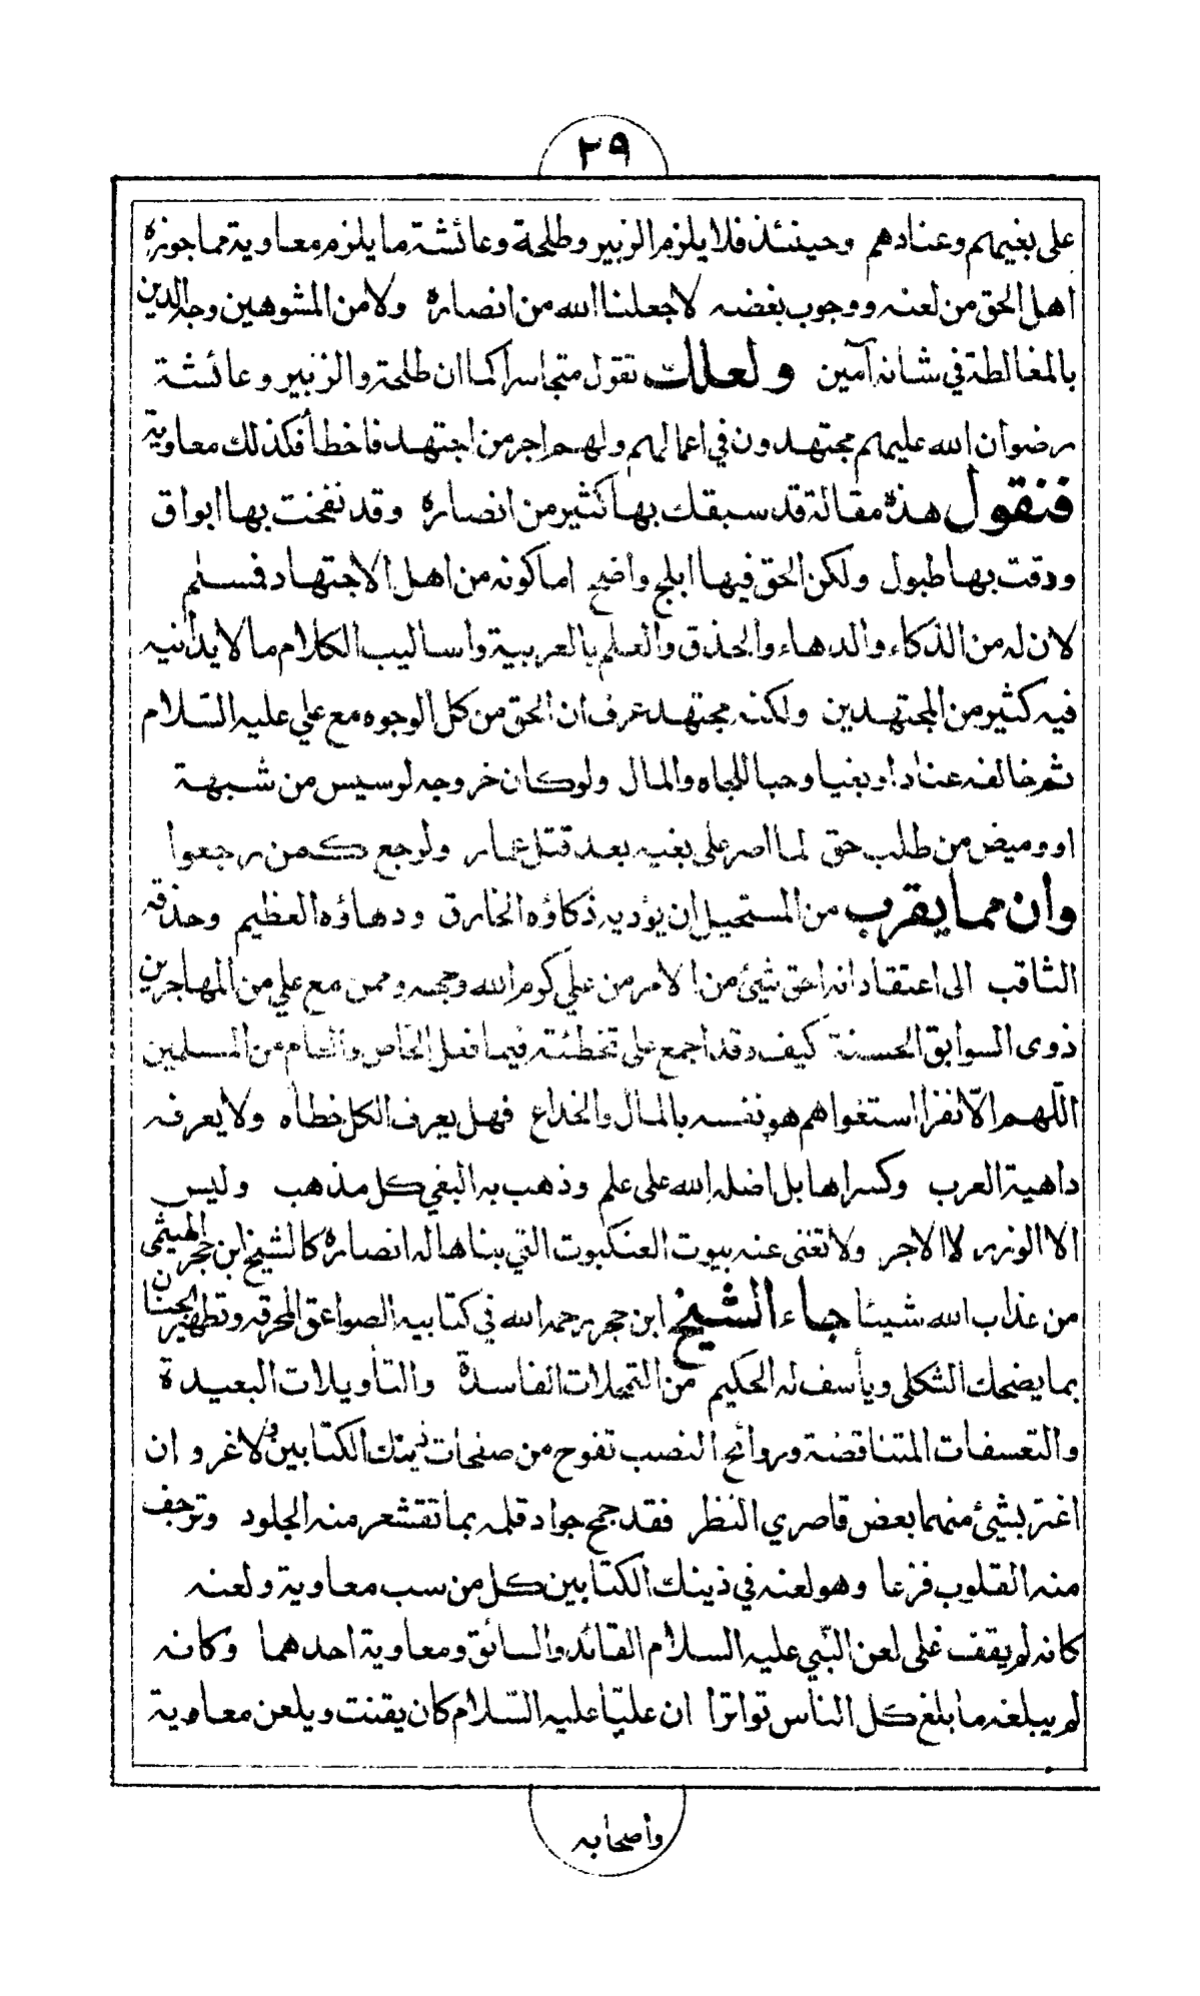 ٢٩
على بغيهم وعنادهم وحينئذ فلا يلزم الزبير وطلحة وعائشة ما يلزم معاوية مما جوزه
اهل الحق من لعنه ووجوب بغضه لا جعلنا الله من انصاره ولا من المشوهين وجه الدين
بالمغالطة في شانه آمين ولعلك تقول متجاسرا كما ان طلحة والزبير وعائشة
رضوان الله عليهم مجتهدون في اعمالهم ولهم اجر من اجتهد فاخطأ فكذلك معاوية
فنقول هذه مقالة قد سبقك بها كثير من انصاره وقد نفخت بها ابواق
ودقت بها طبول ولكن الحق فيها ابلج واضح اما كونه من اهل الاجتهاد فمسلم
لان له من الذكاء والدهاء والحذق والعلم بالعربية واساليب الكلام ما لا يدانيه
فيه كثير من المجتهدين ولكنه مجتهد عرف ان الحق من كل الوجوه مع علي عليه السّلام
ثم خالفه عنادا وبغيا وحبا للجاه والمال ولو كان خروجه لوسيس من شبهة
او وميض من طلب حق لما اصر على بغيه بعد قتل عمار ولرجع كمن رجعوا
وان مما يقرب من المستحيل ان يؤديه ذكاؤه الخارق ودهاؤه العظيم وحذقه
الثاقب الى اعتقاد انه احق شيئ من الامر من علي كرم الله وجهه وممن مع علي من المهاجرين
ذوى السوابق الحسنة كيف وقد اجمع على تخطئته فيما فعل الخاص والعام من المسلمين
اللّهم الّا نفرا استغواهم هو نفسه بالمال والخداع فهل يعرف الكل خطأه ولا يعرفه
داهية العرب وكسراها بل اضله الله على علم وذهب به البغي كل مذهب وليس
الا الوزر لا الاجر ولا تغنى عنه بيوت العنكبوت التي بناها له انصاره كالشيخ ابن حجر الهيثمى
من عذاب الله شيئا جاء الشيخ ابن حجر رحمه الله في كتابيه الصواعق المحرقه وتطهير الجنان
بما يضحك الثكلى ويأسف له الحكيم من التمحلات الفاسدة والتأويلات البعيدة
والتعسفات المتناقضة وروائح النصب تفوح من صفحات ذينك الكتابين ولا غرو ان
اغتر بشيئ منهما بعض قاصري النظر فقد جمح جواد قلمه بما تقشعر منه الجلود وترجف
منه القلوب فزعا وهو لعنه في ذينك الكتابين كل من سب معاوية ولعنه
كانه لم يقف على لعن النّبي عليه السلام القائد والسائق ومعاوية احدهما وكانه
لم يبلغه ما بلغ كل الناس تواترا ان عليّا عليه السّلام كان يقنت ويلعن معاوية
واصحابه